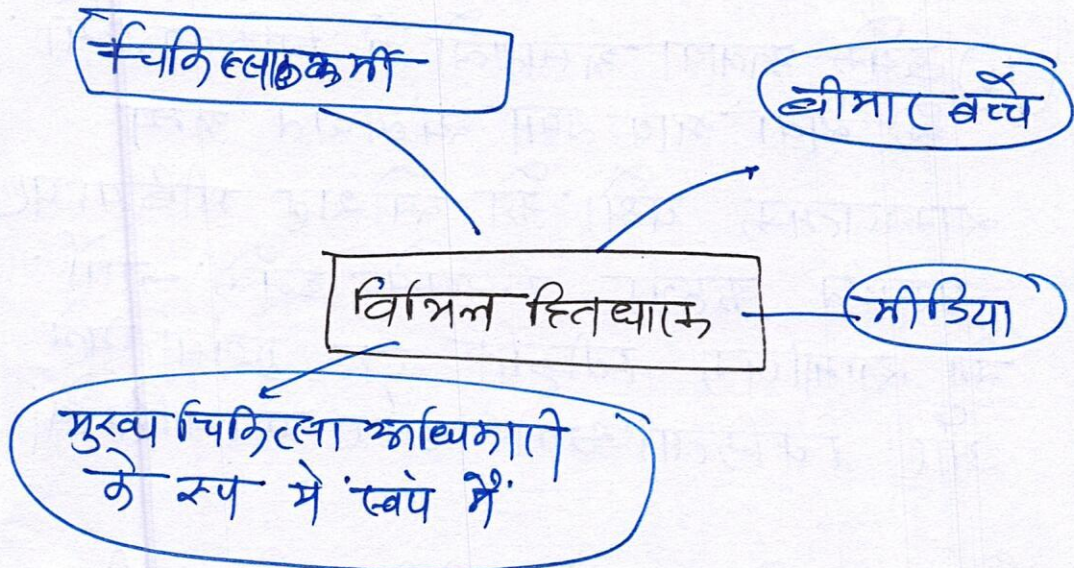 चिकित्साकर्मी
बीमार बच्चे
विभिन्न हितधारक
मीडिया
मुख्य चिकित्सा अधिकारी
के रूप में स्वयं मैं